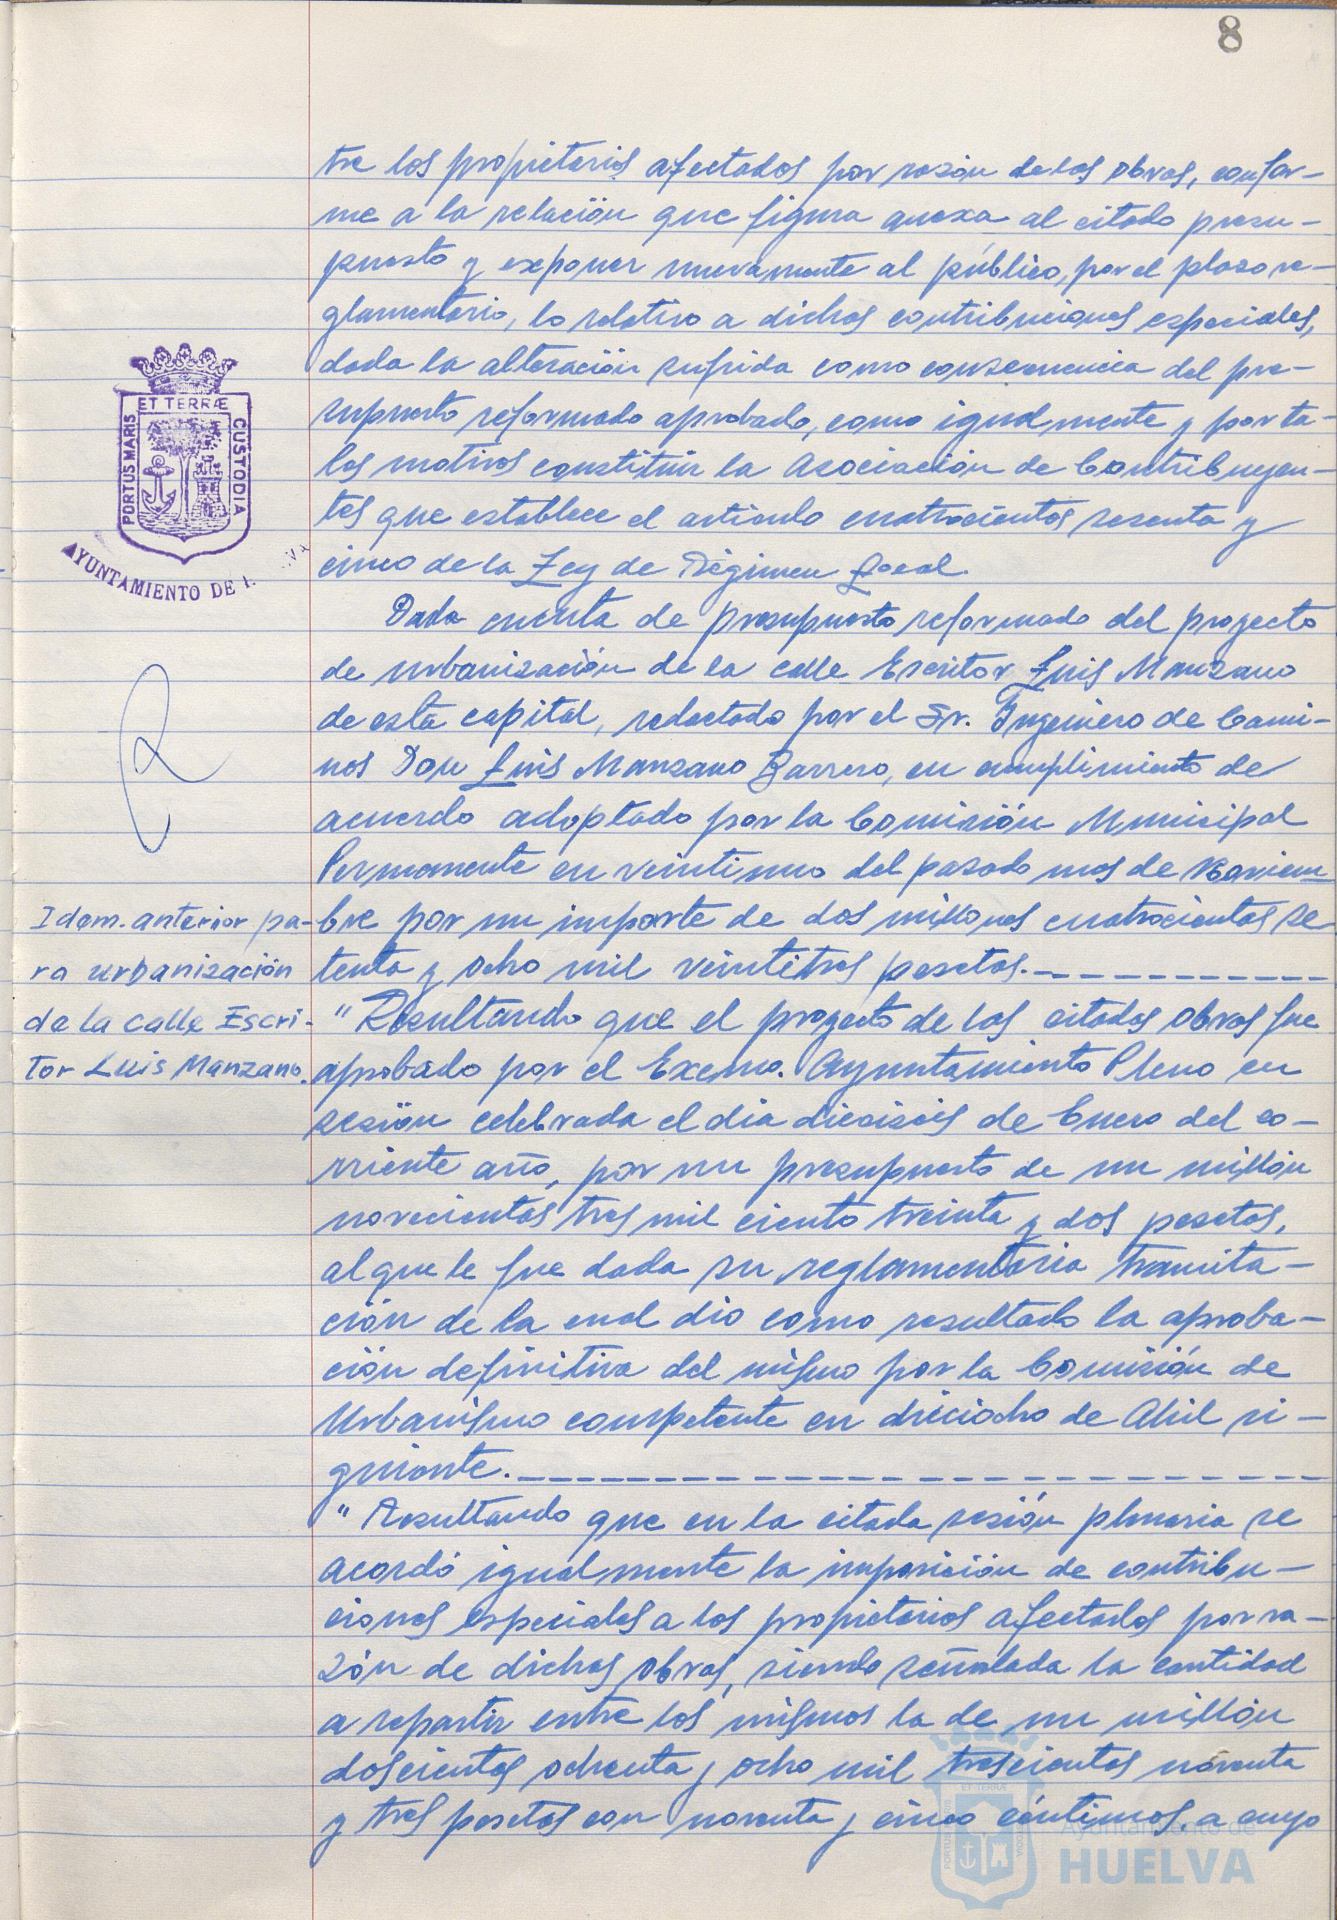 8
tre los propietarios afectados por razón de las obras, confor-
me a la relación que figura anexa al citado presu-
puesto y exponer nuevamente al público, por el plazo re-
glamentario, lo relativo a dichas contribuciones especiales,
dada la alteración sufrida como consecuencia del pre-
supuesto reformado aprobado, como igualmente y por ta-
les motivos constituir la Asociación de Contribuyen-
tes que establece el artículo cuatrocientos sesenta y
cinco de la Ley de Régimen Local.
ET TERRÆ
PORTUS MARIS
CUSTODIA
AYUNTAMIENTO DE
Dada cuenta de presupuesto reformado del proyecto
de urbanización de la calle Escritor Luis Manzano
de esta capital, redactado por el Sr. Ingeniero de Cami-
nos Don Luis Manzano Barrero, en cumplimiento de
acuerdo adoptado por la Comisión Municipal
Permanente en veintiuno del pasado mes de Noviem-
bre por un importe de dos millones cuatrocientas se
tenta y ocho mil veintitres pesetas.
Idem. anterior pa-
ra urbanización
de la calle Escri-
tor Luis Manzano.
"Resultando que el proyecto de las citadas obras fue
aprobado por el Excmo. Ayuntamiento Pleno en
sesión celebrada el día dieciseis de Enero del co-
rriente año, por un presupuesto de un millón
novecientas tres mil ciento treinta y dos pesetas,
al que le fue dada su reglamentaria tramita-
ción de la cual dio como resultado la aproba-
ción definitiva del mismo por la Comisión de
Urbanismo competente en dieciocho de Abril si-
guiente.
"Resultando que en la citada sesión plenaria se
acordó igualmente la imposición de contribu-
ciones especiales a los propietarios afectados por ra-
zón de dichas obras, siendo señalada la cantidad
a repartir entre los mismos la de un millón
doscientas ochenta y ocho mil trescientas noventa
y tres pesetas con noventa y cinco céntimos, a cuyo
Ayuntamiento de
HUELVA